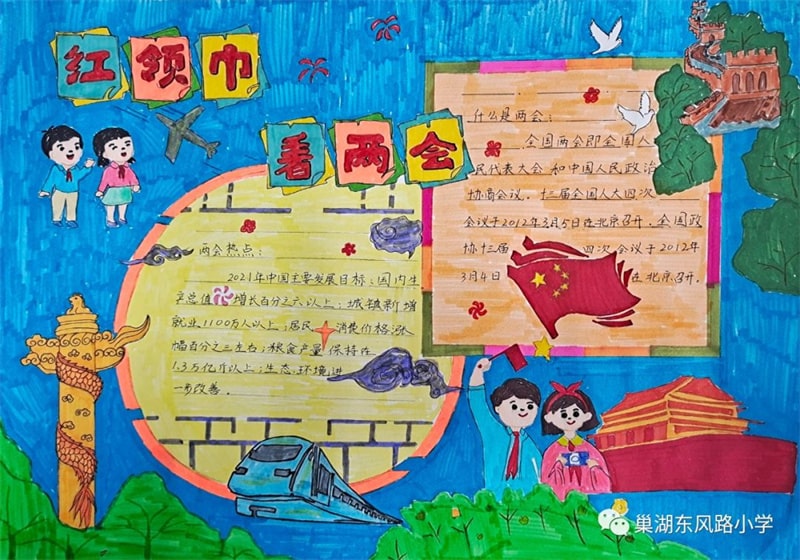 红领巾
看两会
什么是两会：
全国两会即全国人
民代表大会和中国人民政治
协商会议。十三届全国人大四次
会议于2012年3月5日在北京召开。全国政
协十三届 四次会议于2012年
3月4日 在北京召开.
两会热点：
2021年中国主要发展目标：国内生
产总值增长百分之六以上；城镇新增
就业1100万人以上；居民消费价格涨
幅百分之三左右；粮食产量保持在
1.3万亿斤以上；生态环境进
一步改善。
巢湖东风路小学